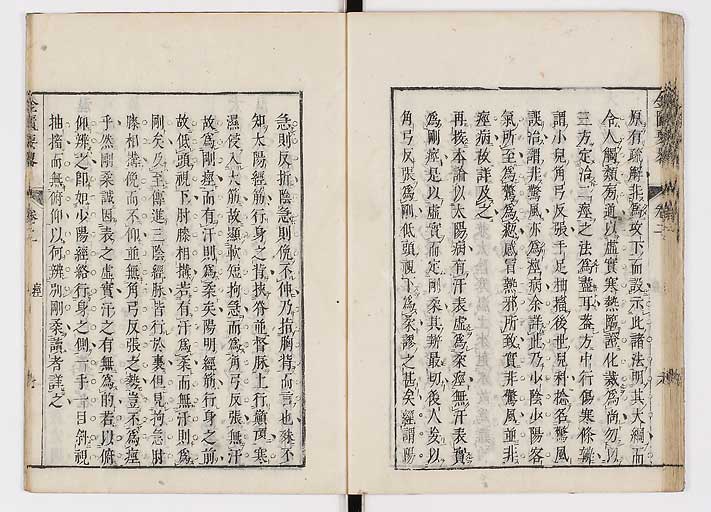 原有疎解非爲攻下而設示此諸法明其大綱而
令人觸類旁通以虛實寒熱臨證化裁爲尚勿以
三方定治二痙之法爲盡耳葢方中行傷寒條辨
謂小兒角弓反張手足抽搐後世兒科捴名驚風
誤治謂非驚風亦爲痙病余詳此乃少陰少陽客
氣所至爲驚爲瘛感冒熱邪所致實非驚風並非
痙病故詳及之
再按本論以太陽病有汗表虛爲柔痙無汗表實
爲剛痙是以虛實而定剛柔其辨最切後人以
角弓反張爲剛低頭視下爲柔謬之甚矣經謂陽
急則反折陰急則俛不伸乃指胸背而言也殊不
知太陽經筋行身之背挾脊並督脉上行巔頂寒
濕侵入大筋故顯軟短拘急而爲角弓反張無汗
故爲剛痙而有汗則爲柔矣陽明經筋行身之前
故低頭視下肘膝相搆若有汗爲柔而無汗則爲
剛矣及至傳進三陰經脉皆行於裏但見拘急肘
膝相搆俛而不仰並無角弓反張之勢豈不爲痙
乎然剛柔識因表之虛實汗之有無爲的若以俯
仰辨之卽如少陽經絡行身之側一手一目斜視
抽搐而無俯仰以何辨別剛柔讀者詳之
痙